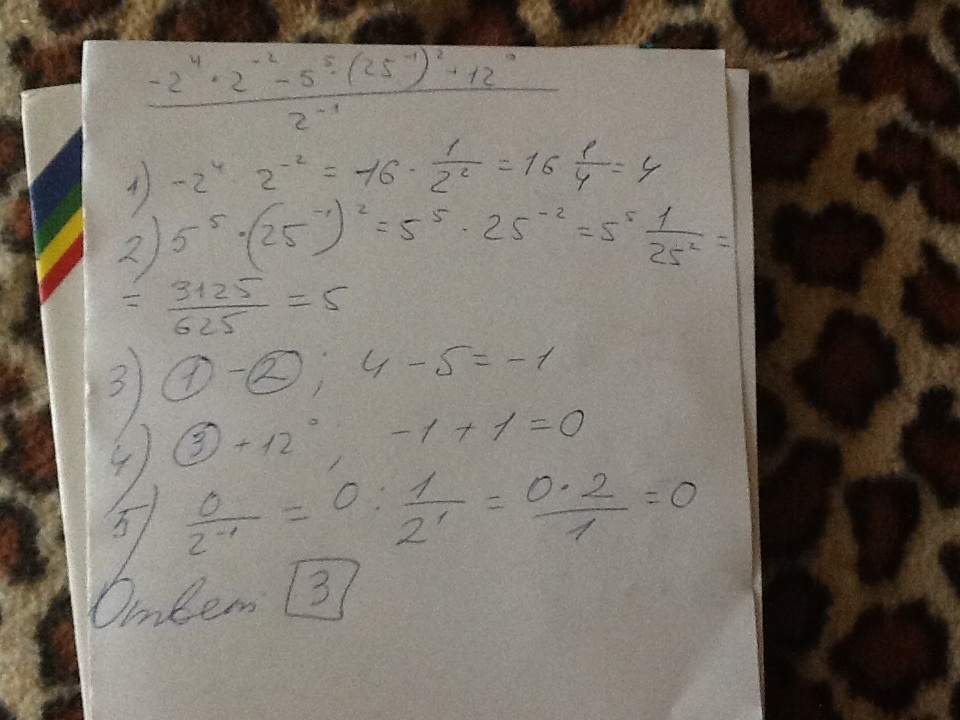 -2⁴ · 2⁻² - 5⁵ · (25⁻¹)² + 12⁰
2⁻¹
1) -2⁴ 2⁻² = -16 · 1/2² = 16 1/4 = 4
2) 5⁵ · (25⁻¹)² = 5⁵ · 25⁻² = 5⁵ 1/25² =
= 3125/625 = 5
3) ① - ②; 4 - 5 = -1
4) ③ + 12⁰; -1 + 1 = 0
5) 0/2⁻¹ = 0 : 1/2¹ = 0·2/1 = 0
Ответ 3